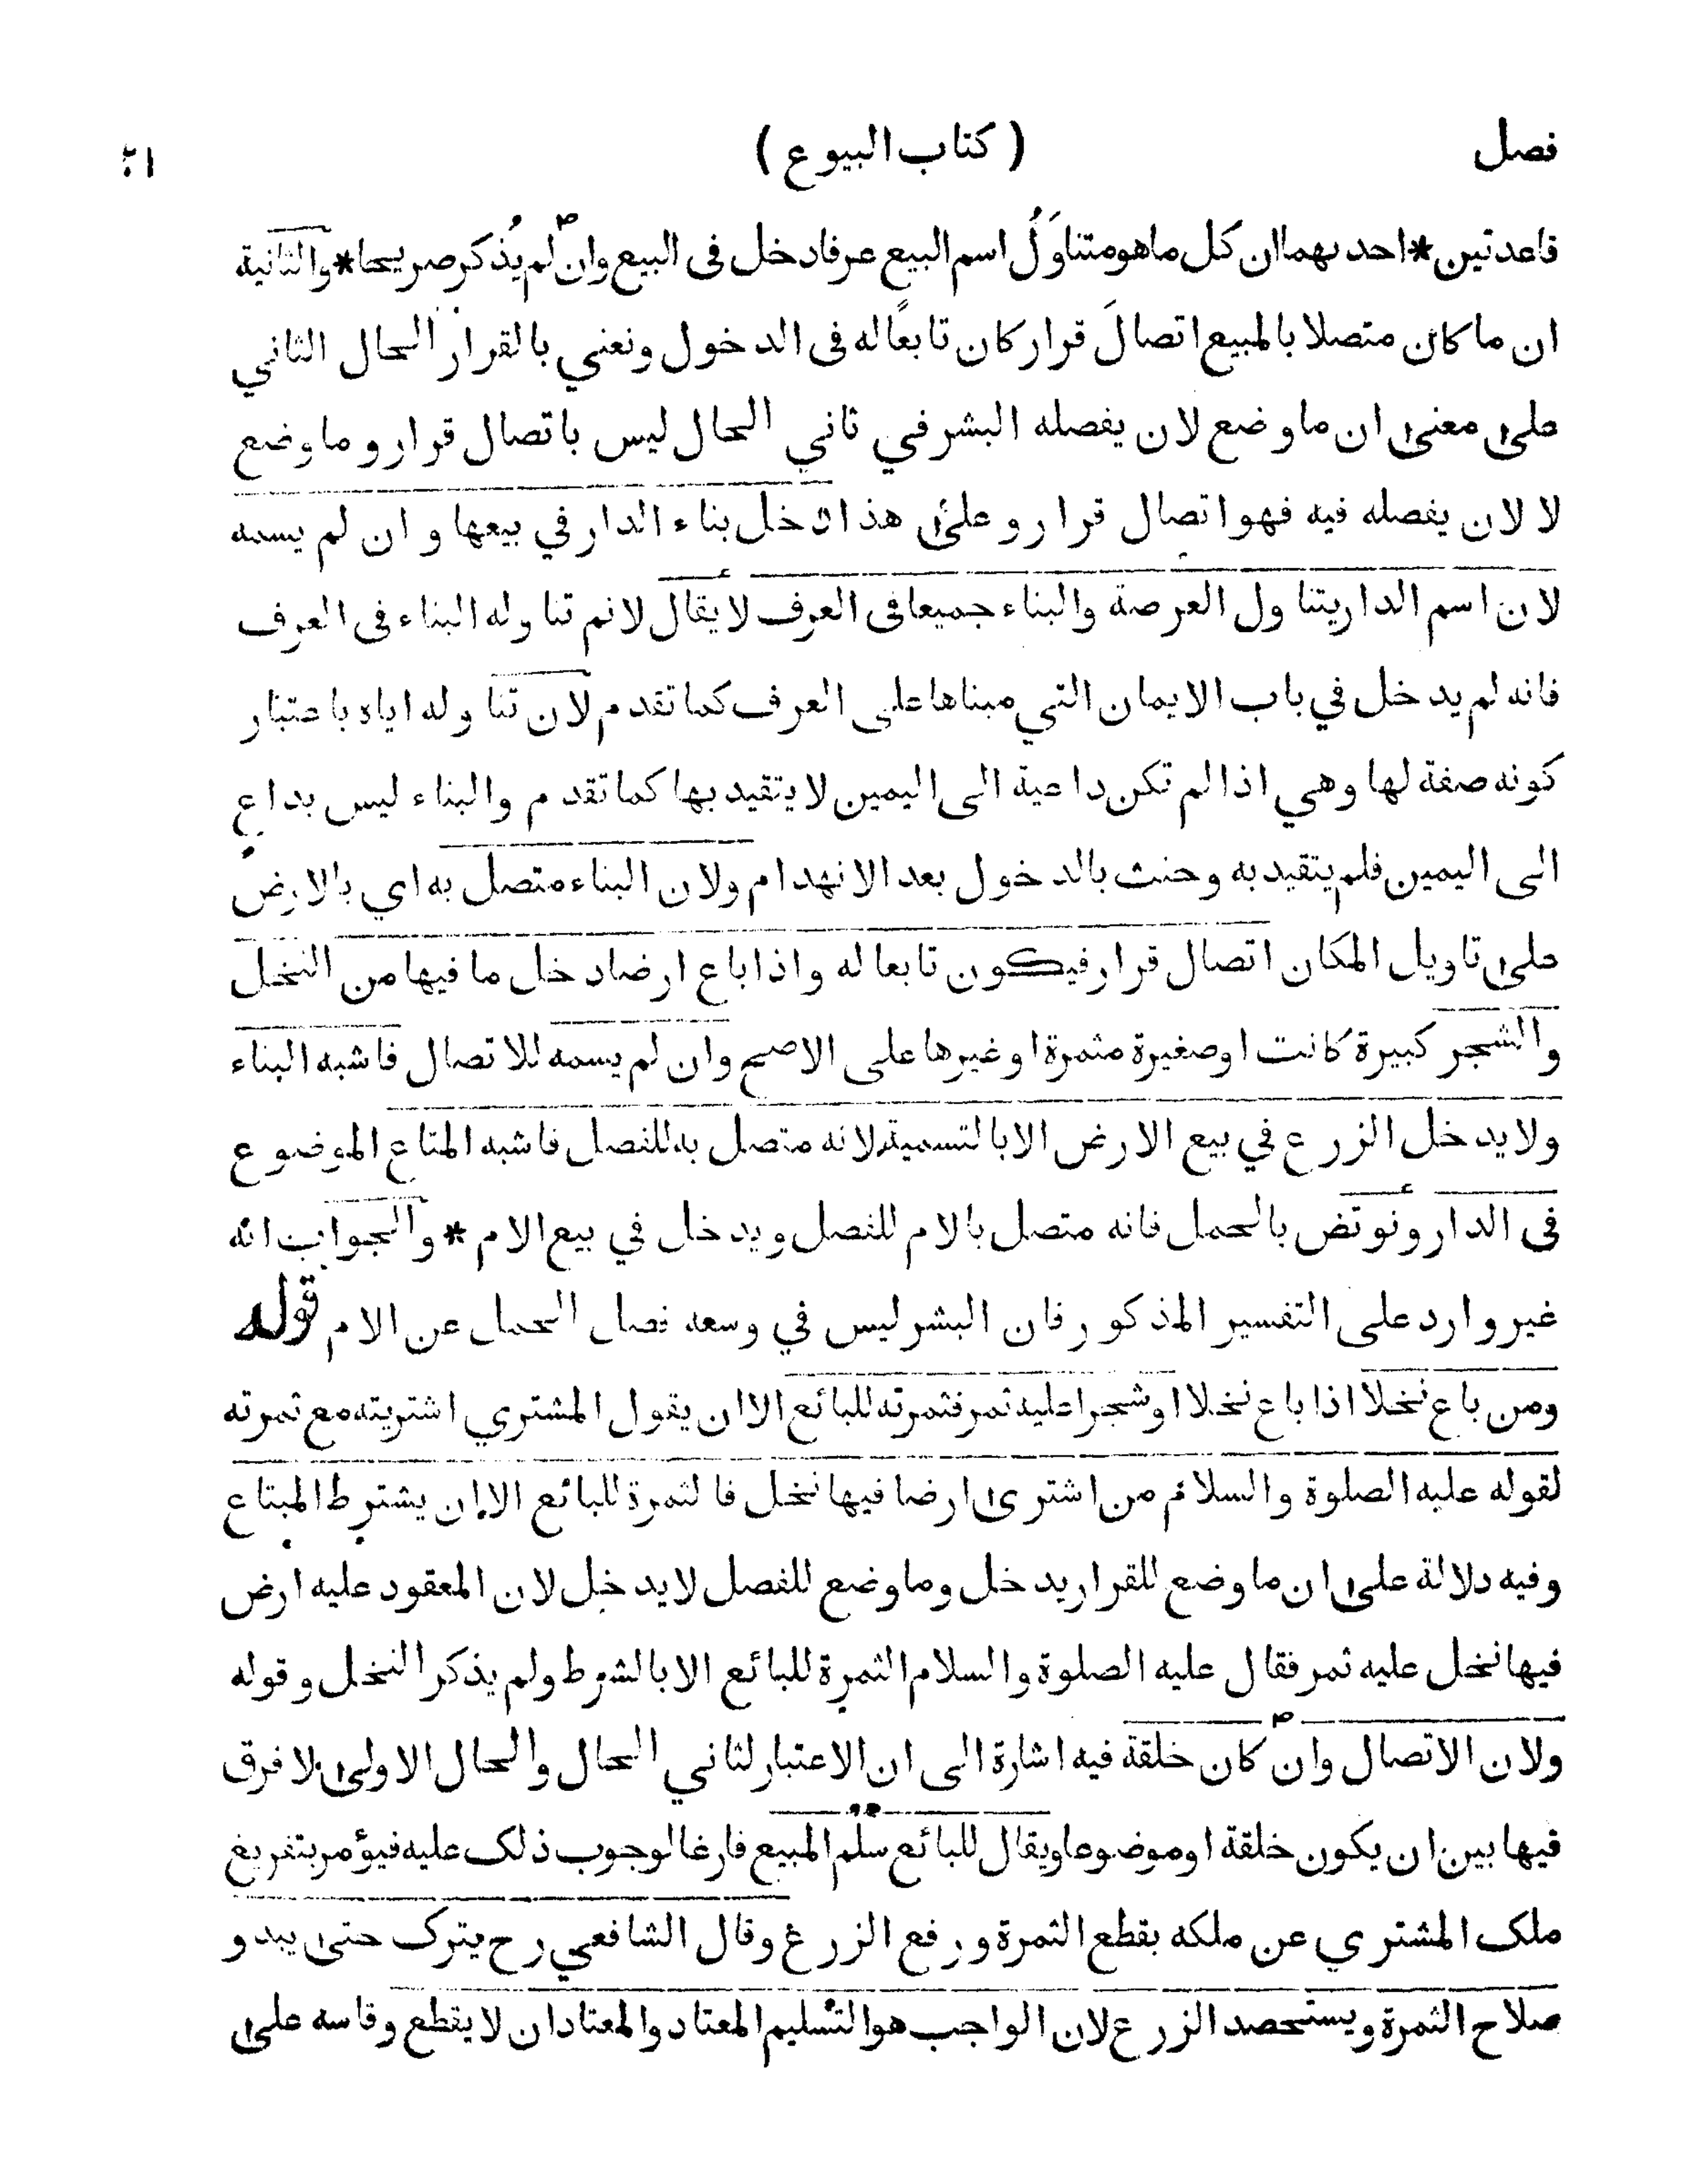 فصل ( كتاب البيوع ) ٢١
قاعدتين * احدىهما ان كل ما هو متناوَلُ اسم البيع عرفا دخل فى البيع وان لم يُذكر صريحا * والثانية
ان ما كان متصلا بالمبيع اتصالَ قرار كان تابعًا له فى الدخول ونعني بالقرار الحال الثاني
على معنى ان ما وضع لان يفصله البشر في ثاني الحال ليس باتصال قرار و ما وضع
لا لان يفصله فيه فهو اتصال قرار و على هذا دخل بناء الدار في بيعها و ان لم يسمه
لان اسم الدار يتناول العرصة والبناء جميعا فى العرف لا يقال لانم تناوله البناء فى العرف
فانه لم يدخل في باب الايمان التي مبناها على العرف كما تقدم لان تناوله اياه باعتبار
كونه صفة لها وهي اذا لم تكن داعية الى اليمين لا يتقيد بها كما تقدم والبناء ليس بداع
الى اليمين فلم يتقيد به وحنث بالدخول بعد الانهدام ولان البناء متصل به اي بالارض
على تاويل المكان اتصال قرار فيكون تابعا له واذا باع ارضا دخل ما فيها من النخل
والشجر كبيرة كانت او صغيرة مثمرة او غيرها على الاصح وان لم يسمه للاتصال فاشبه البناء
ولا يدخل الزرع في بيع الارض الا بالتسمية لانه متصل به للفصل فاشبه المتاع الموضوع
فى الدار ونوقض بالحمل فانه متصل بالام للفصل ويدخل في بيع الام * والجواب انه
غير وارد على التفسير المذكور فان البشر ليس في وسعه فصل الحمل عن الام قوله
ومن باع نخلا اذا باع نخلا او شجرا عليه ثمر فثمرته للبائع الا ان يقول المشتري اشتريته مع ثمرته
لقوله عليه الصلوة والسلام من اشترى ارضا فيها نخل فالثمرة للبائع الا ان يشترط المبتاع
وفيه دلالة على ان ما وضع للقرار يدخل وما وضع للفصل لا يدخل لان المعقود عليه ارض
فيها نخل عليه ثمر فقال عليه الصلوة والسلام الثمرة للبائع الا بالشرط ولم يذكر النخل وقوله
ولان الاتصال وان كان خلقة فيه اشارة الى ان الاعتبار لثاني الحال والحال الاولى لا فرق
فيها بين ان يكون خلقة او موضوعا ويقال للبائع سلّم المبيع فارغا لوجوب ذلك عليه فيؤمر بتفريغ
ملك المشتري عن ملكه بقطع الثمرة ورفع الزرع وقال الشافعي رح يترك حتى يبدو
صلاح الثمرة ويستحصد الزرع لان الواجب هو التسليم المعتاد والمعتاد ان لا يقطع وقاسه على